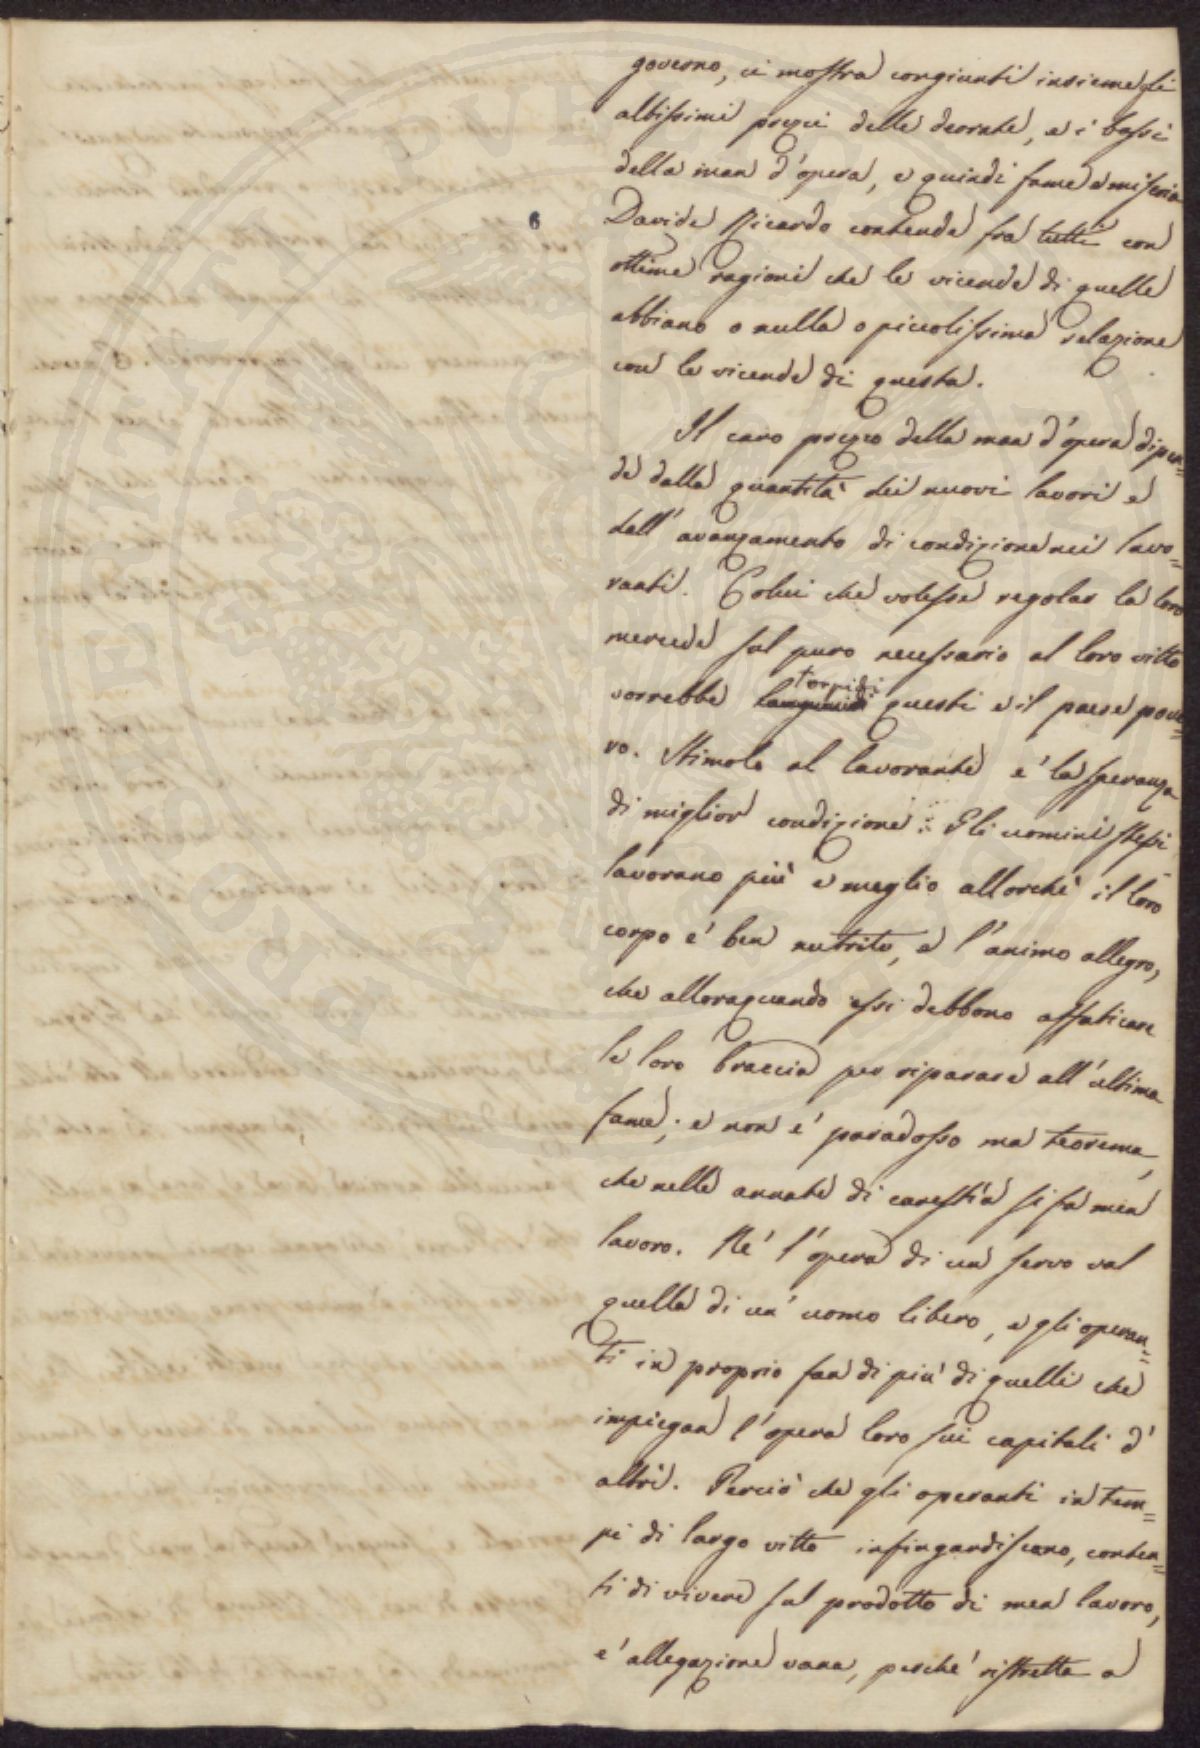 governo, ci mostra congiunti insieme gli
altissimi prezzi delle derrate, e i bassi
della man d'opera, e quindi fame e miseria
6
Davide Ricardo contende fra tutti con
ottime ragioni che le vicende di quelle
abbiano o nulla o piccolissima relazione
con le vicende di questa.
Il caro prezzo della man d'opera dipen=
de dalla quantità dei nuovi lavori e
dall'avanzamento di condizione nei lavo=
ranti. Colui che volesse regolar la loro
mercede sul puro necessario al loro vitto
torpidi
vorrebbe questi e il paese pove=
ro. Stimolo al lavorante e' la speranza
di miglior condizione: Gli uomini stessi
lavorano più e meglio allorché il loro
corpo e' ben nutrito, e l'animo allegro,
che alloraquando essi debbono affaticare
le loro braccia per riparare all'ultima
fame; e non e' paradosso ma teorema,
che nelle annate di carestia si fa men
lavoro. Ne' l'opera di un servo val
quella di un'uomo libero, e gli operan=
ti in proprio fan di più di quelli che
impiegan l'opera loro sui capitali d'
altri. Perciò che gli operanti in tem=
pi di largo vitto infingardiscono, conten=
ti di vivere sul prodotto di men lavoro,
e' allegazione vana, perche' ristretta a